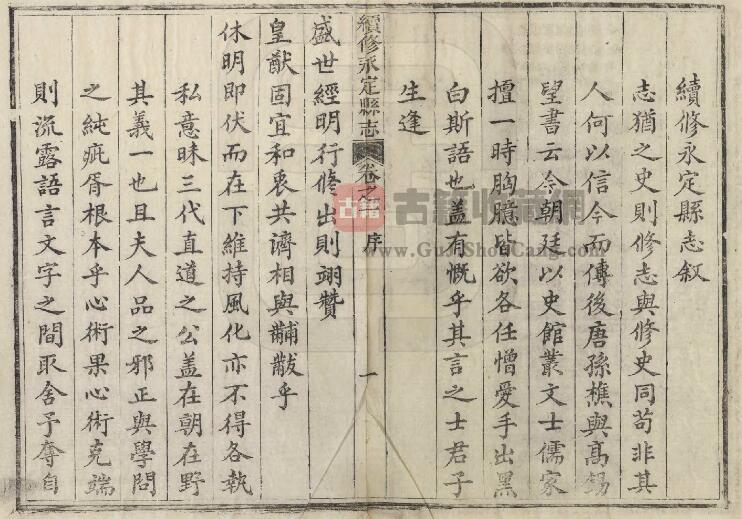 續修永定縣志叙
志猶之史則修志與修史同苟非其
人何以信今而傳後唐孫樵與高錫
望書云今朝廷以史館叢文士儒家
擅一時胸臆皆欲各任憎愛手出黑
白斯語也盖有慨乎其言之士君子
生逢
續修永定縣志 卷之 序 一
盛世經明行修出則翊贊
皇猷固宜和衷共濟相與黼黻乎
休明即伏而在下維持風化亦不得各執
私意昧三代直道之公盖在朝在野
其義一也且夫人品之邪正與學問
之純疵胥根本乎心術果心術克端
則流露語言文字之間取舍予奪自
古籍 古籍收藏網
www.GuJiShouCang.com